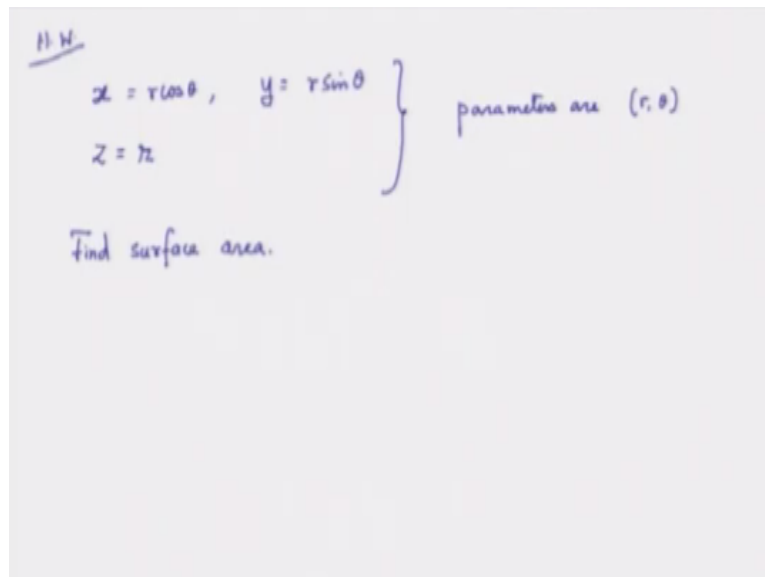 H.W.
x = r cos θ, y = r sin θ } parameters are (r, θ)
z = r
Find surface area.